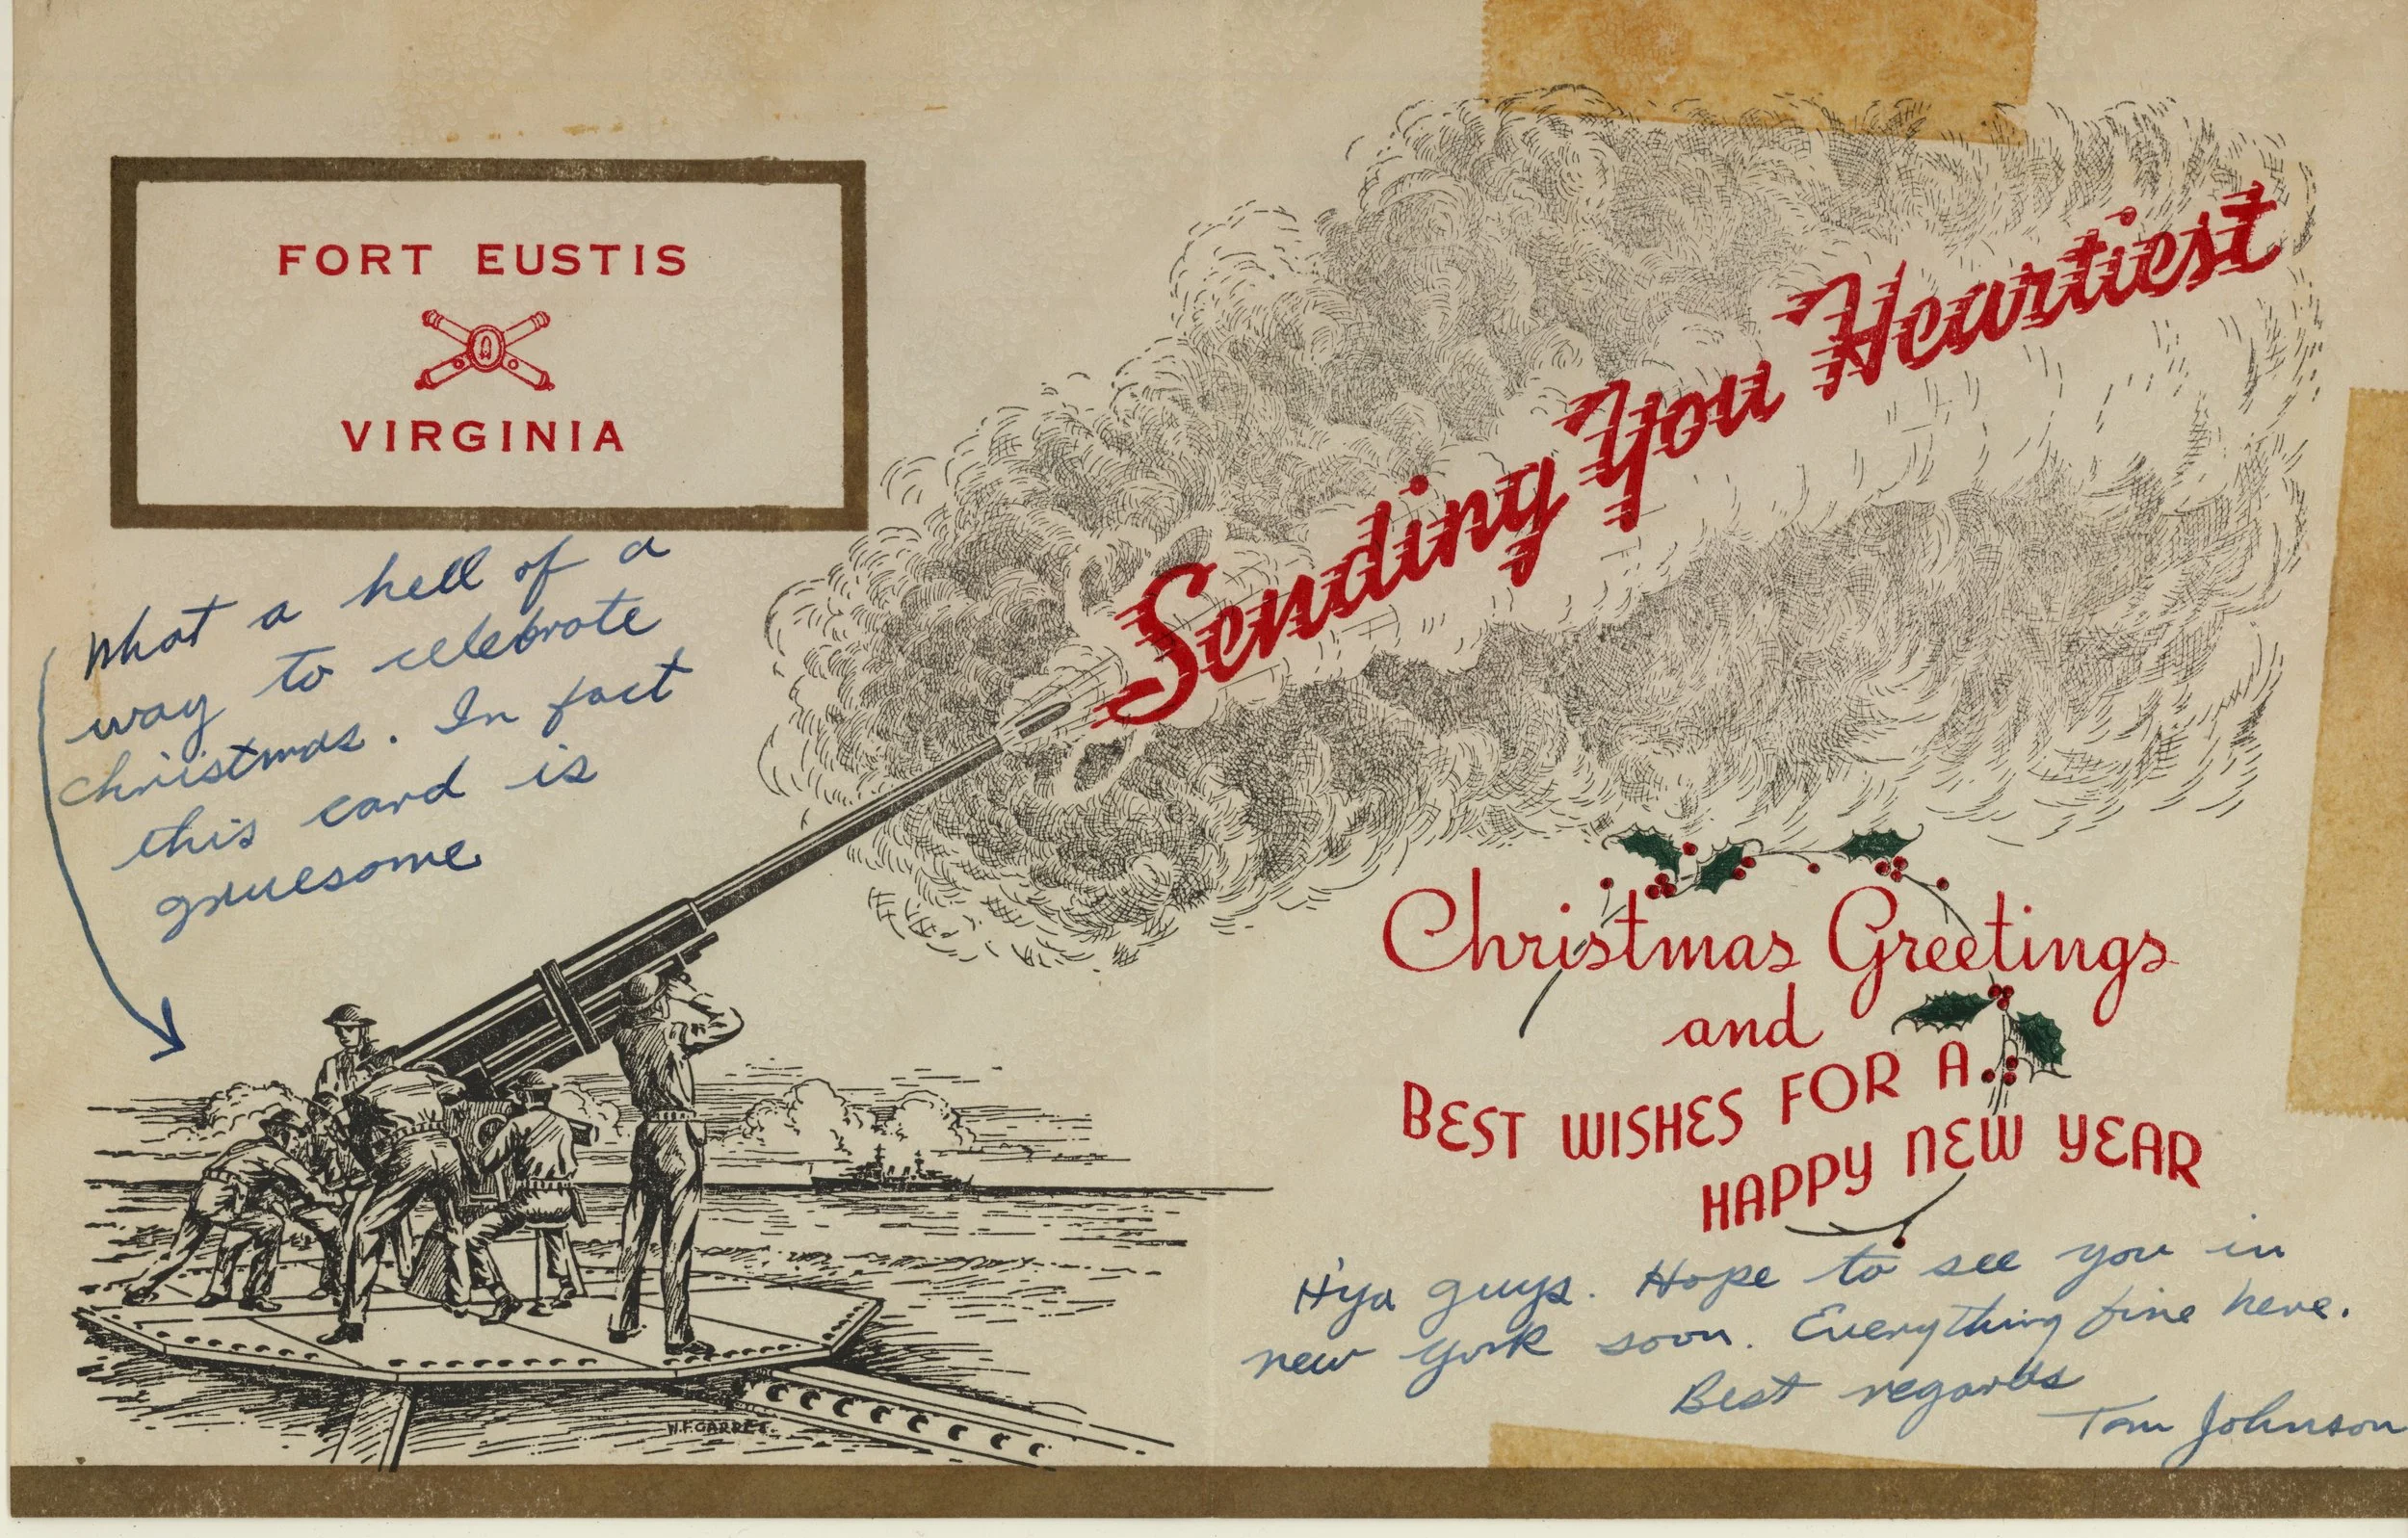 FORT EUSTIS
VIRGINIA
What a hell of a
way to celebrate
christmas. In fact
this card is
gruesome
Sending You Heartiest
Christmas Greetings
and
BEST WISHES FOR A
HAPPY NEW YEAR
H'ya guys. Hope to see you in
new york soon. Everything fine here.
Best regards
Tom Johnson